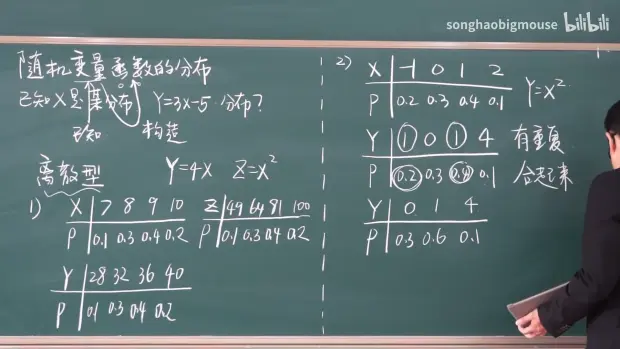 songhaobigmouse bilibili
随机变量函数的分布
已知X是某分布 Y=3X-5 分布?
已知 构造
离散型 Y=4X Z=X²
1) X 7 8 9 10
P 0.1 0.3 0.4 0.2
Z 49 64 81 100
P 0.1 0.3 0.4 0.2
Y 28 32 36 40
P 0.1 0.3 0.4 0.2
2) X -1 0 1 2
P 0.2 0.3 0.4 0.1 Y=X²
Y 1 0 1 4 有重复
P 0.2 0.3 0.4 0.1 合起来
Y 0 1 4
P 0.3 0.6 0.1